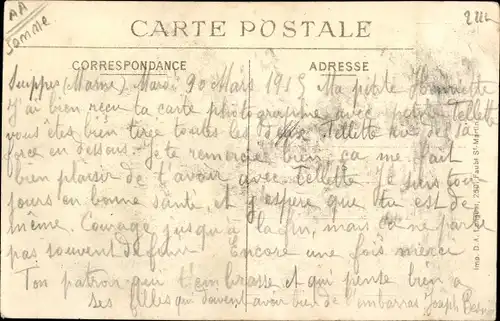 AA
Somme
CARTE POSTALE
CORRESPONDANCE
ADRESSE
Suippes (Marne) Mardi 30 Mars 1915 Ma petite Henriette
J'ai bien reçu ta carte photographie avec petite Tellette
vous êtes bien tirée toutes les deux Tellette rit de sa
force en dessous. Je te remercie bien ça me fait
bien plaisir de t'avoir avec Tellette Je suis tou
jours en bonne santé et j'espère que tu est de
même. Courage jusqu'à la fin, mais ça ne parle
pas souvent de finir Encore une fois merci
Ton patron qui t'embrasse et qui pense bien à
ses filles qui doivent avoir bien de l'embarras Joseph
Imp. D.A. Faubg St-Martin